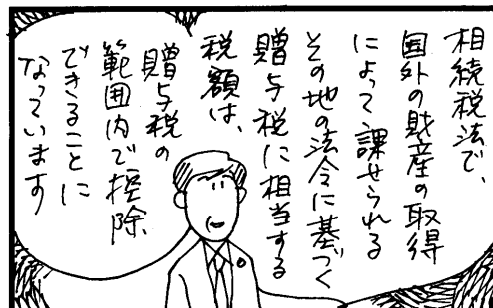 相続税法で、
国外の財産の取得
によって課せられる
その地の法令に基づく
贈与税に相当する
税額は、
贈与税の
範囲内で控除
できることに
なっています